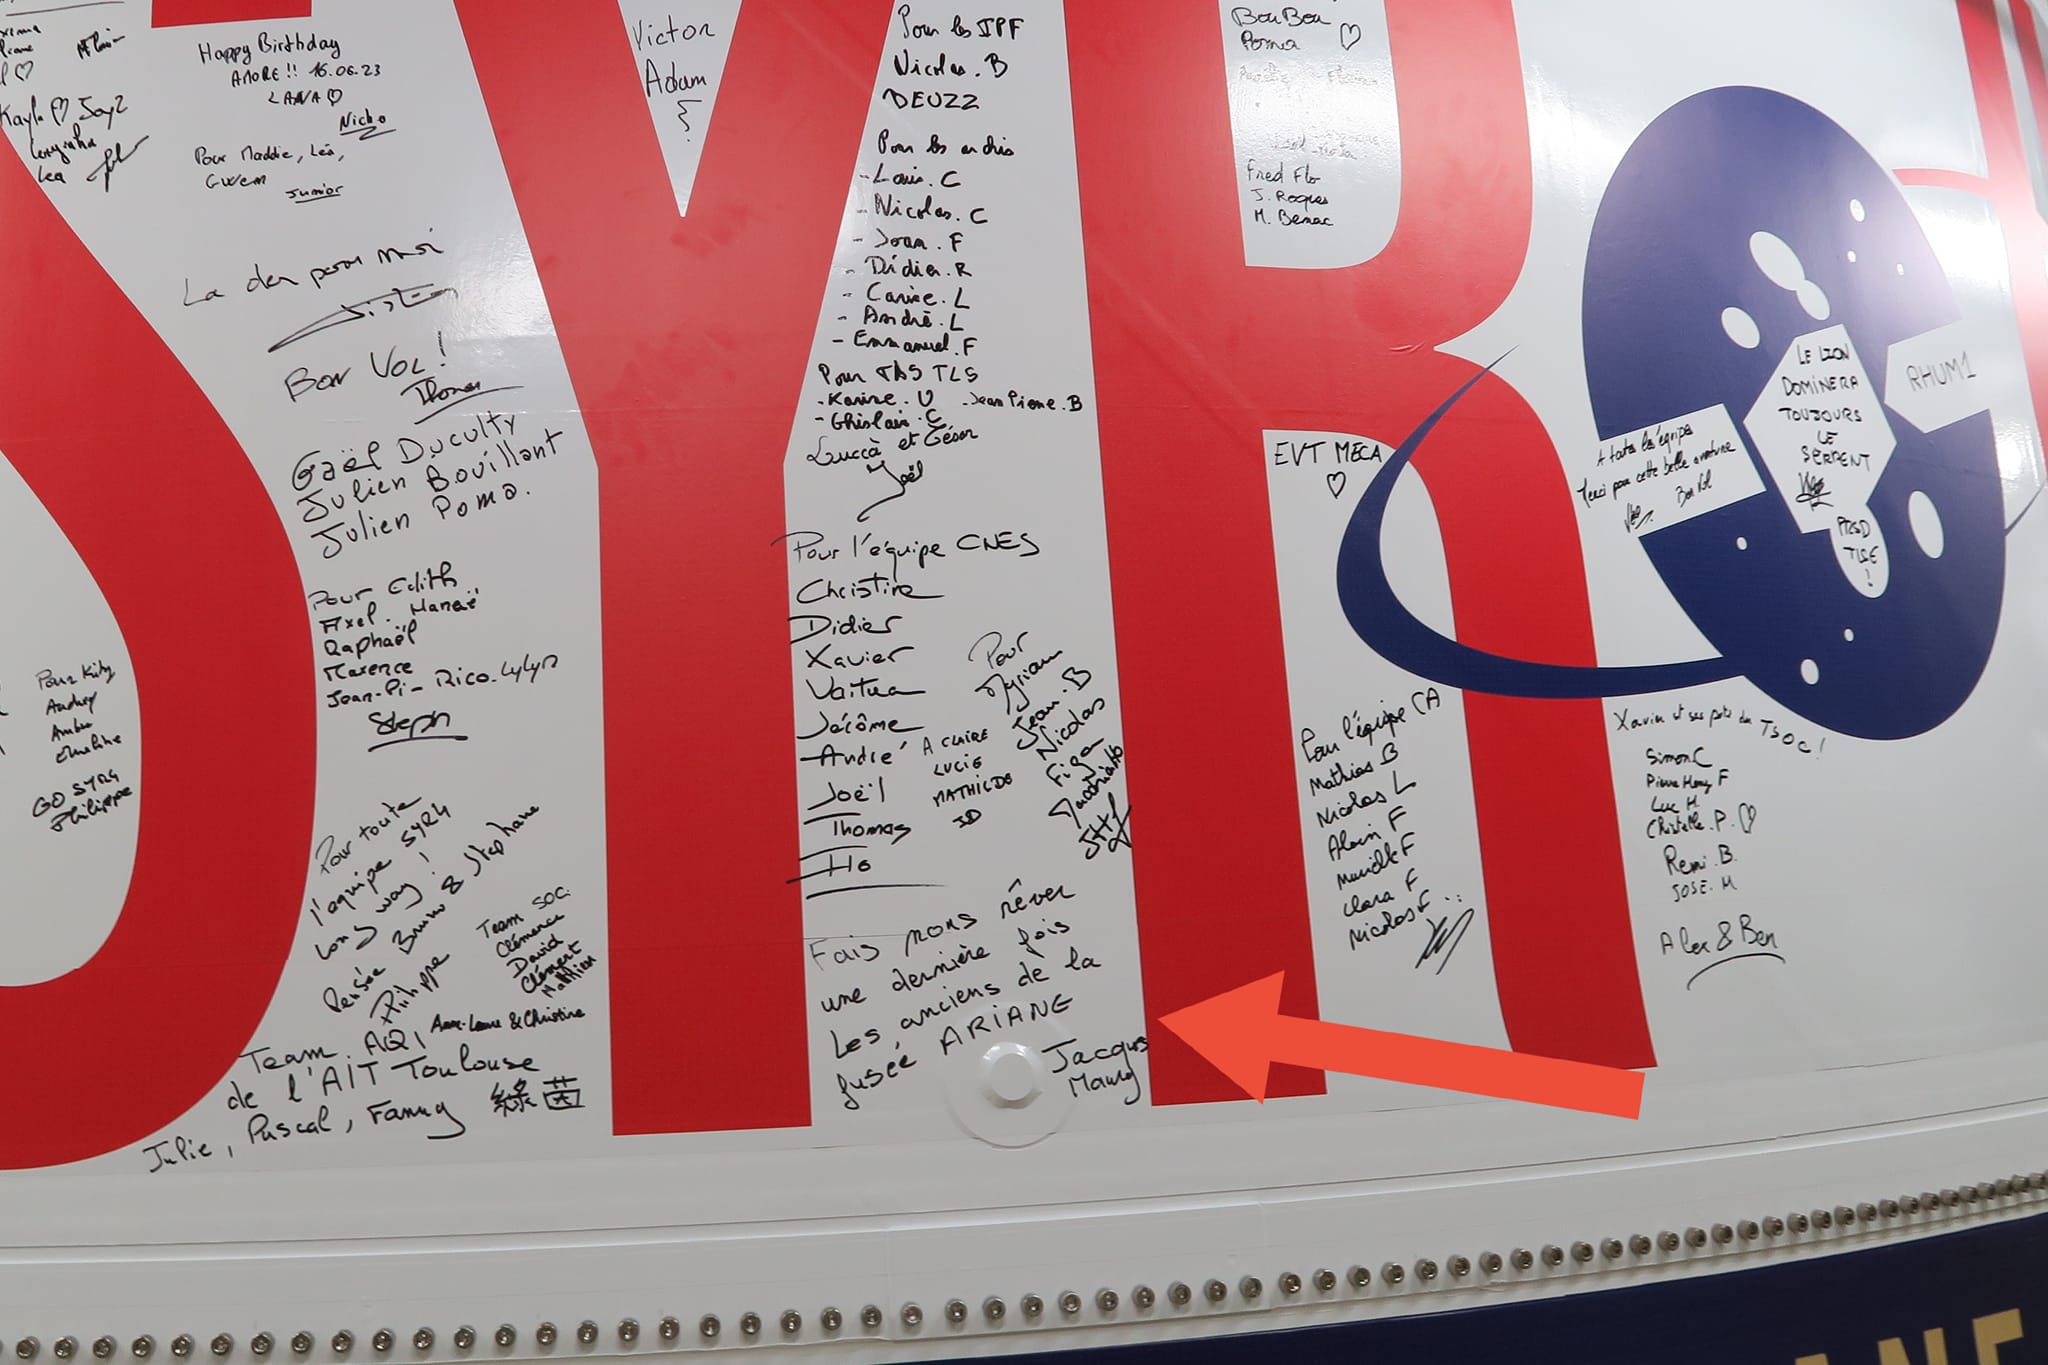 Happy Birthday
AMORE !! 16.06.23
LANA ♡
Nicko
Pour Maddie, Léa,
Gwen
Junior
La der pour moi
Bon Vol !
Thomas
Gaël Duculty
Julien Bouillant
Julien Pomo.
Pour Edith
Axel. Manaë
Raphaël
Maxence
Jean-Pi - Rico. Lylyp
Steph
Pour Kity
Audrey
Ambre
Emeline
GO SYR4
Philippe
Pour toute
l'équipe SYR4
Long way !
Bruno & Stephane
Pensée
Philippe
Team SOC.
Clémence
David
Clément
Mathieu
Anne-Laure & Christine
Team AQ,
de l'AIT Toulouse
Julie, Pascal, Fanny
SYR
Victor
Adam
Pour les IPF
Nicolas. B
DEUZZ
Pour les archis
- Louis. C
- Nicolas. C
- Joan. F
- Didier. R
- Carine. L
- André. L
- Emmanuel. F
Pour TAS TLS
- Karine. V - Jean Pierre. B
- Ghislain. C
Lucca et César
Joël
Pour l'équipe CNES
Christine
Didier
Xavier
Vaitua
Jérôme
André
Joël
Thomas
Ho
A CLAIRE
LUCIE
MATHILDE
JD
Pour
Myriam
Jean. B
Nicolas
Figa
Fais nous rêver
une dernière fois
Les anciens de la
fusée ARIANE
Jacques
Maury
BouBou
Poma ♡
Fred Flo
J. Roques
M. Benac
EVT MECA
♡
Pour l'équipe CA
Mathias B
Nicolas L
Alain F
Murielle F
Clara F
Nicolas F..
A toutes les équipes
Merci pour cette belle aventure
Bon Vol
LE LION
DOMINERA
TOUJOURS
LE
SERPENT
PROD
TLSE
!
RHUM1
Xavier et ses potes du TSOC !
Simon C
Pierre Henry F
Luc H
Christelle. P. ♡
Remi. B.
JOSE. M
Alex & Ben